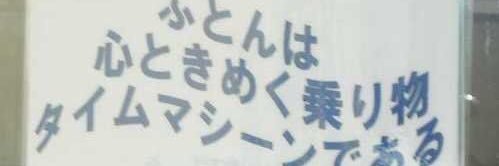 ふとんは
心ときめく乗り物
タイムマシーンである